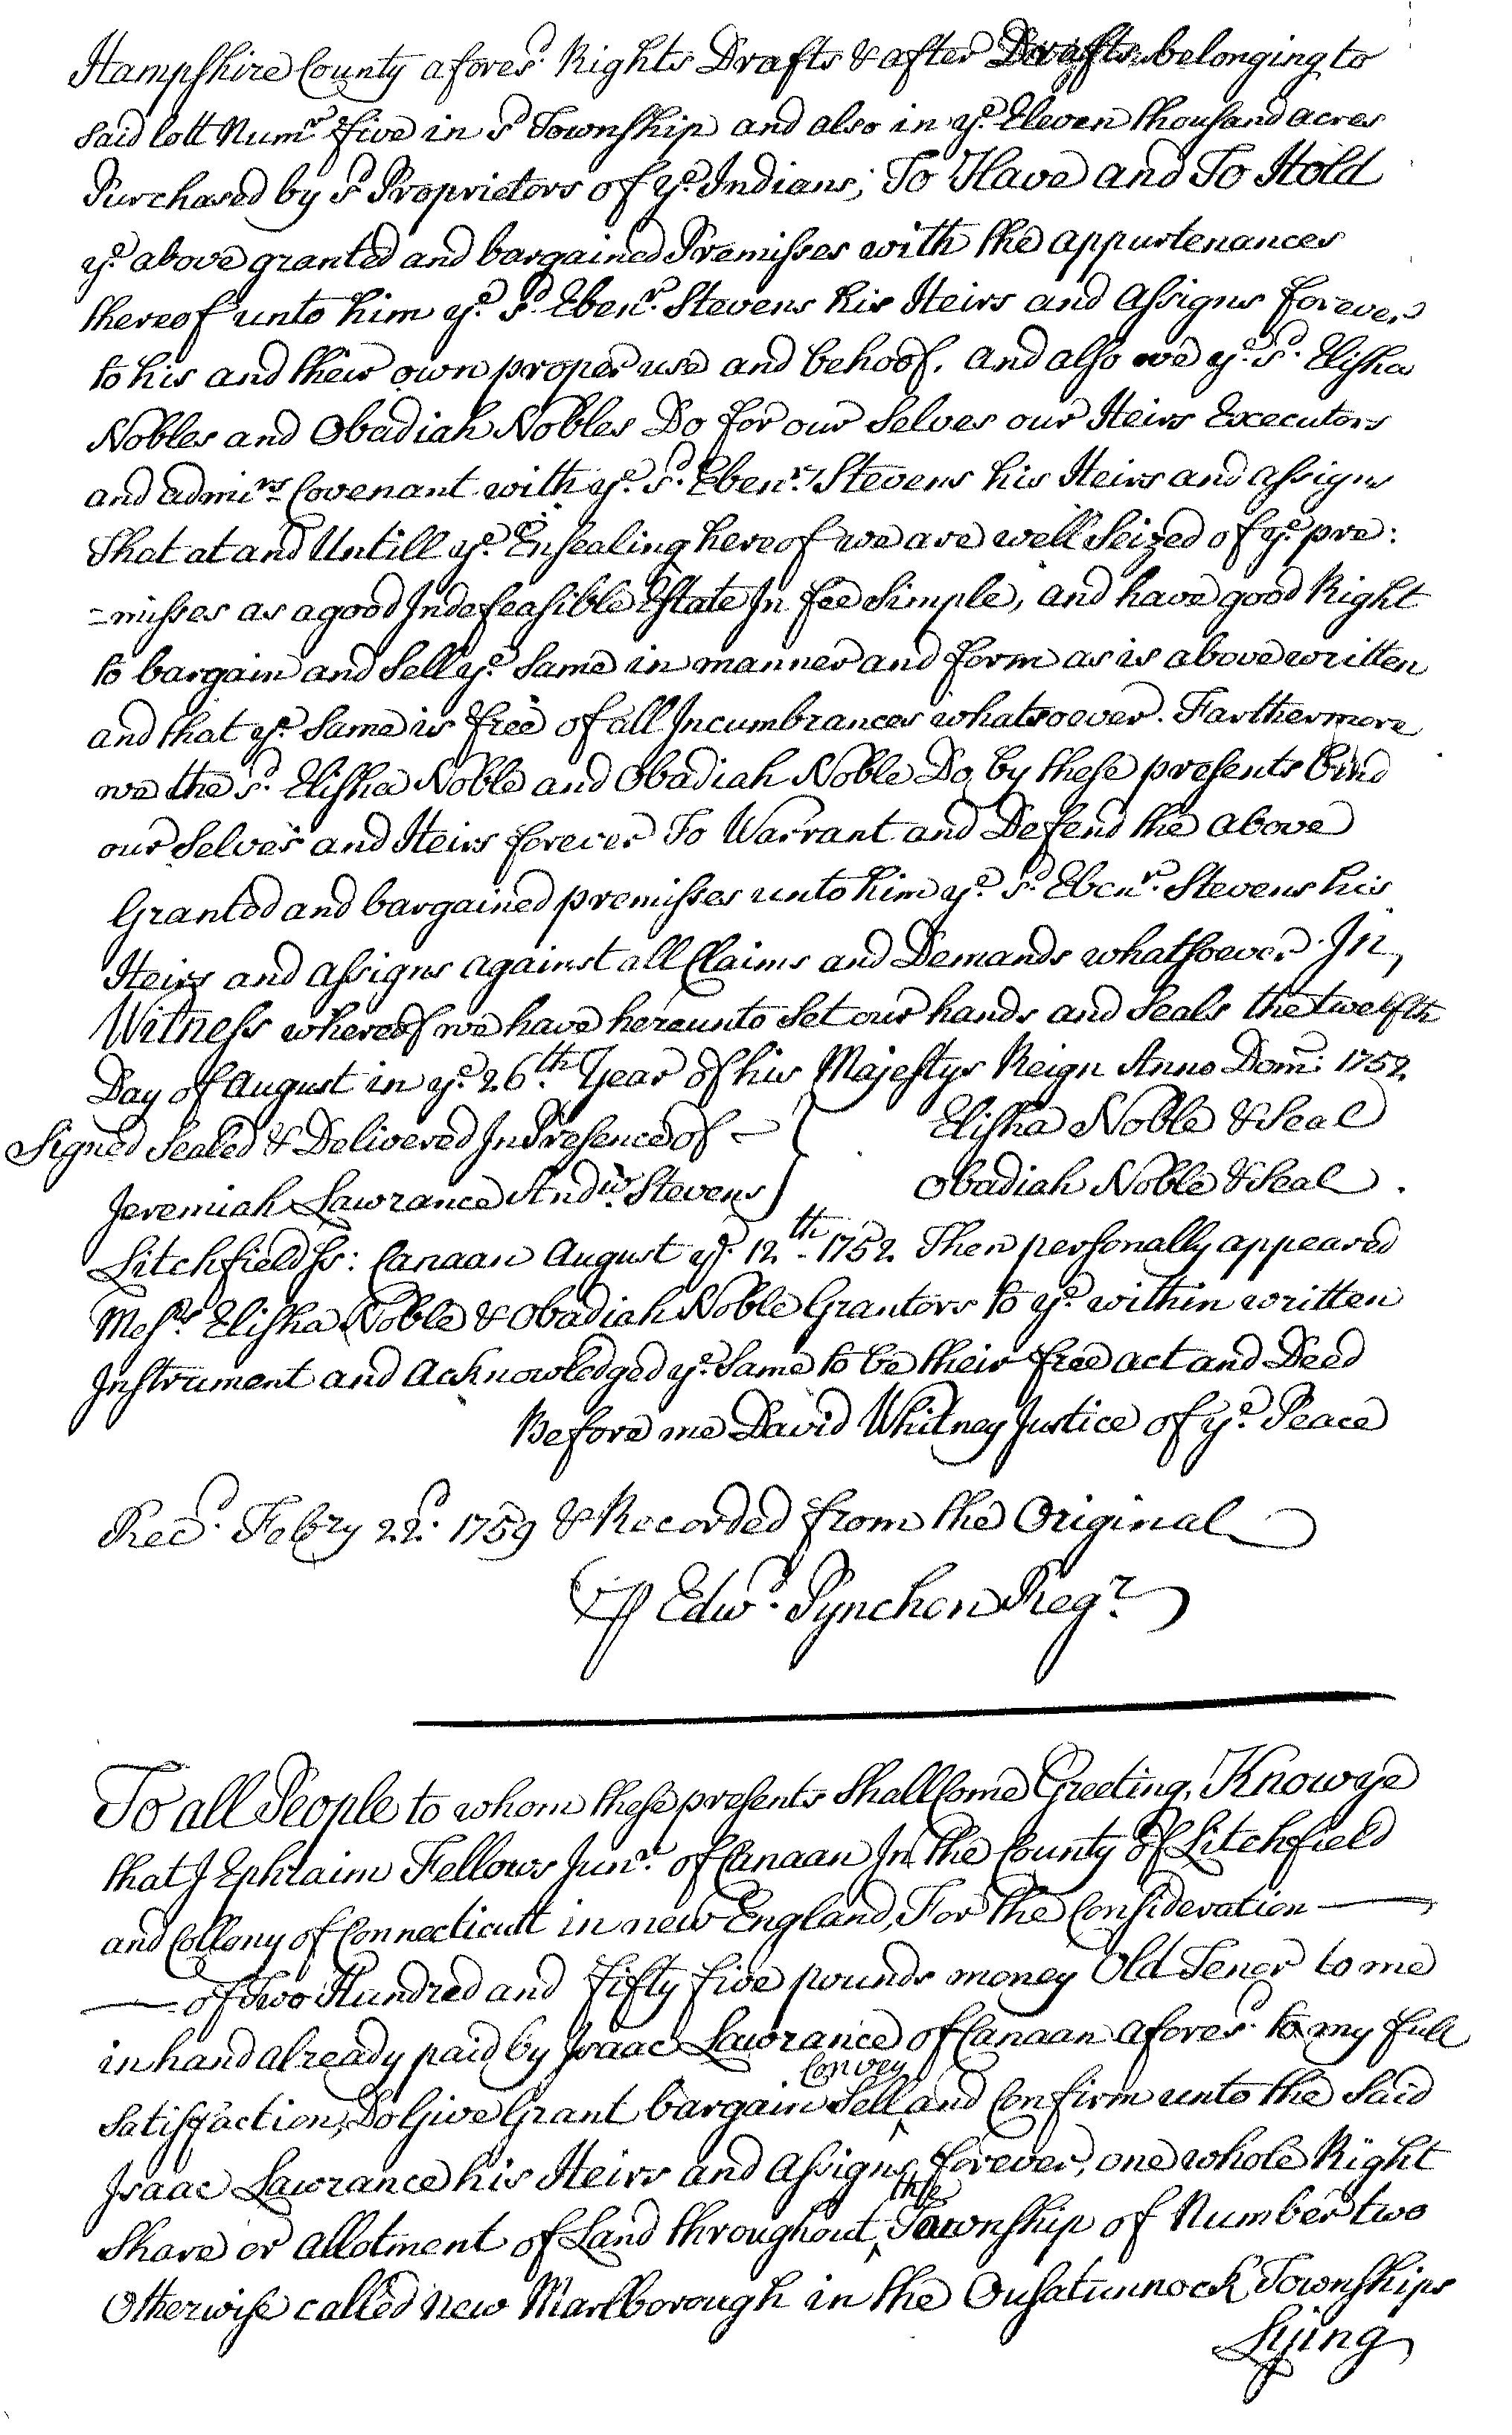 Hampshire County afores.d Rights Drafts & after Drafts belonging to
said lott Num.r five in s.d Township and also in y.e Eleven thousand acres
Purchased by s.d Proprietors of y.e Indians; To Have and To Hold
y.e above granted and bargained Premisses with the appurtenances
thereof unto him y.e s.d Eben.r Stevens his Heirs and Assigns forever
to his and their own proper use and behoof. and also we y.e s.d Elisha
Nobles and Obadiah Nobles Do for our selves our Heirs Executors
and admi.rs Covenant with y.e s.d Eben.r Stevens his Heirs and assigns
that at and Untill y.e Ensealing hereof we are well Seized of y.e pre:
=misses as a good Indefeasible Estate In fee simple, and have good Right
to bargain and sell y.e same in manner and form as is above written
and that y.e same is free of all Incumbrances whatsoever. Farthermore
we the s.d Elisha Noble and Obadiah Noble Do by these presents bind
our selves and Heirs forever To Warrant and Defend the above
Granted and bargained premisses unto him y.e s.d Eben.r Stevens his
Heirs and assigns against all Claims and Demands whatsoever. In
Witness whereof we have hereunto set our hands and seals the twelfth
Day of August in y.e 26.th Year of his Majestys Reign Anno Dom: 1752.
Signed Sealed & Delivered In Presence of — Elisha Noble & Seal
Jeremiah Lawrance And.w Stevens } Obadiah Noble & Seal.
Litchfield Ss: Canaan August y.e 12.th 1752. Then personally appeared
Mess.rs Elisha Noble & Obadiah Noble Grantors to y.e within written
Instrument and Acknowledged y.e same to be their free act and Deed
Before me David Whitney Justice of y.e Peace
Rec.d Febry 22.d 1759 & Recorded from the Original
⅌ Edw.d Pynchon Reg.r
To all People to whom these presents shall Come Greeting, Know ye
that I Ephraim Fellows Jun.r of Canaan In the County of Litchfield
and Collony of Connecticutt in new England, For the Consideration —
— of Two Hundred and fifty five pounds money Old Tener to me
in hand already paid by Isaac Lawrance of Canaan afores.d to my full
Convey
satisfaction, Do Give Grant bargain Sell ^ and Confirm unto the said
Isaac Lawrance his Heirs and Assigns forever, one whole Right
the
Share or allotment of Land throughout ^ Township of Number two
Otherwise called new Marlborough in the Ousatunnock Townships
Lying